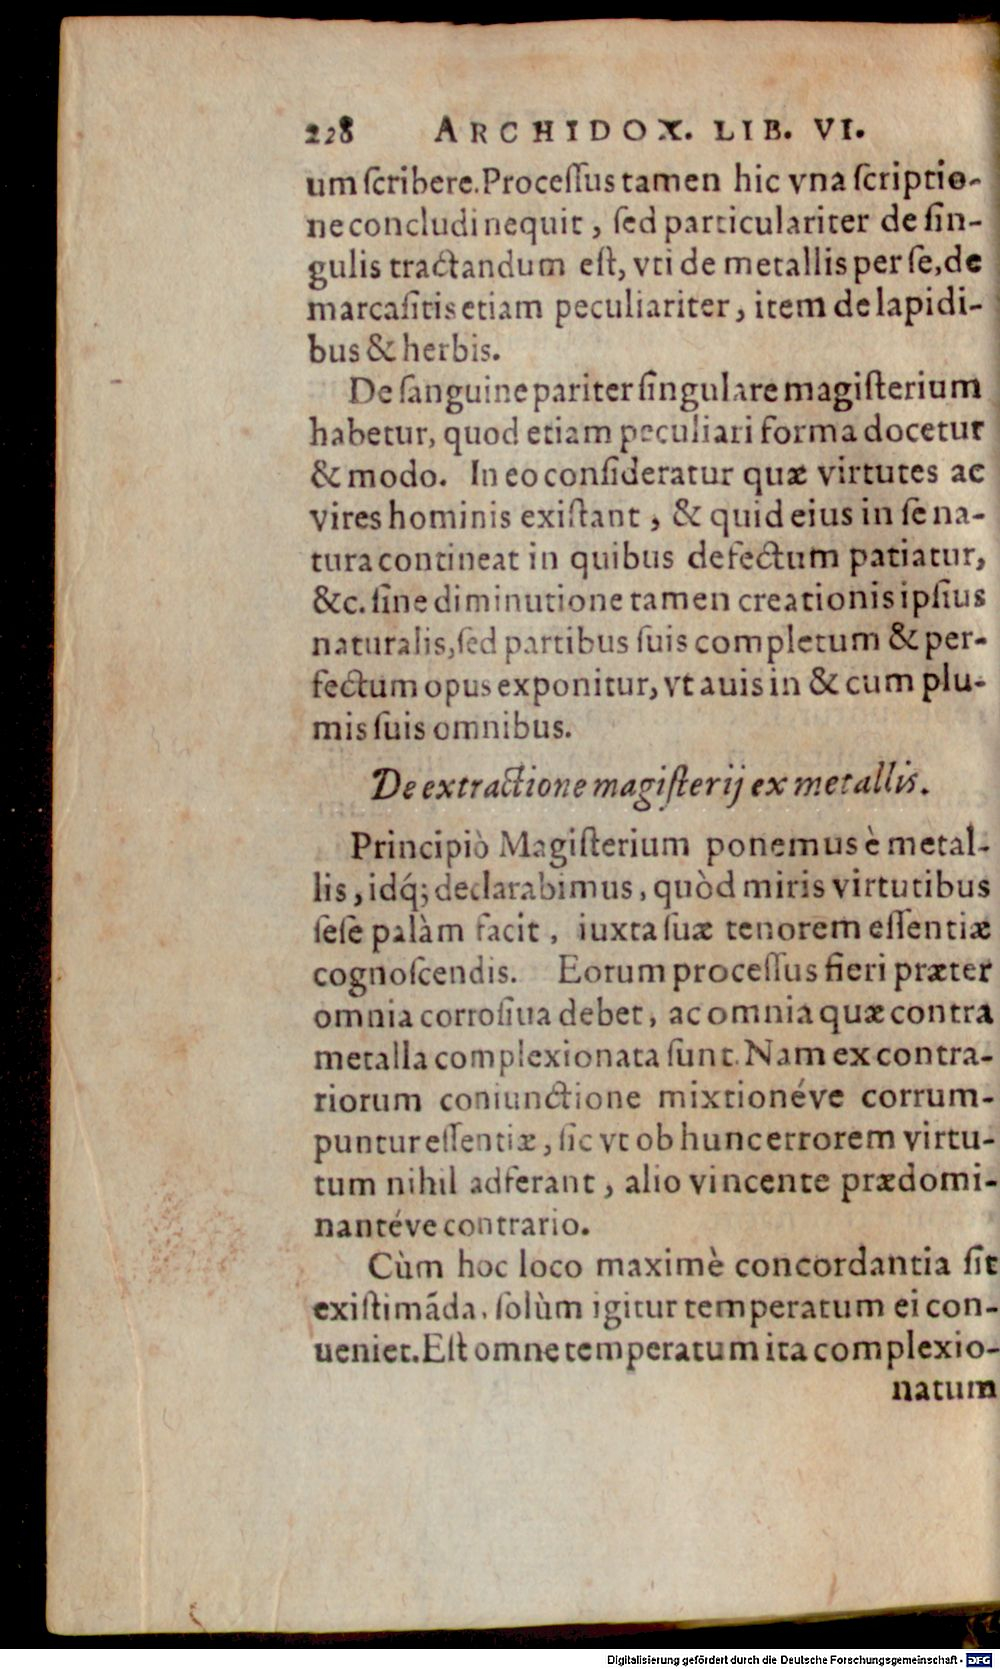 228 ARCHIDOX. LIB. VI.
um ſcribere. Proceſſus tamen hic vna ſcriptio-
ne concludi nequit, ſed particulariter de ſin-
gulis tractandum eſt, vti de metallis per ſe, de
marcaſitis etiam peculiariter, item de lapidi-
bus & herbis.
De ſanguine pariter ſingulare magiſterium
habetur, quod etiam peculiari forma docetur
& modo. In eo conſideratur quæ virtutes ac
vires hominis exiſtant, & quid eius in ſe na-
tura contineat in quibus defectum patiatur,
&c. ſine diminutione tamen creationis ipſius
naturalis, ſed partibus ſuis completum & per-
fectum opus exponitur, vt auis in & cum plu-
mis ſuis omnibus.
De extractione magiſterij ex metallis.
Principiò Magiſterium ponemus è metal-
lis, idq́; declarabimus, quòd miris virtutibus
ſeſe palàm facit, iuxta ſuæ tenorem eſſentiæ
cognoſcendis. Eorum proceſſus fieri præter
omnia corroſiua debet, ac omnia quæ contra
metalla complexionata ſunt. Nam ex contra-
riorum coniunctione mixtionéve corrum-
puntur eſſentiæ, ſic vt ob hunc errorem virtu-
tum nihil adferant, alio vincente prædomi-
nantéve contrario.
Cùm hoc loco maximè concordantia ſit
exiſtimãda, ſolùm igitur temperatum ei con-
ueniet. Eſt omne temperatum ita complexio-
natum
Digitalisierung gefördert durch die Deutsche Forschungsgemeinschaft - DFG